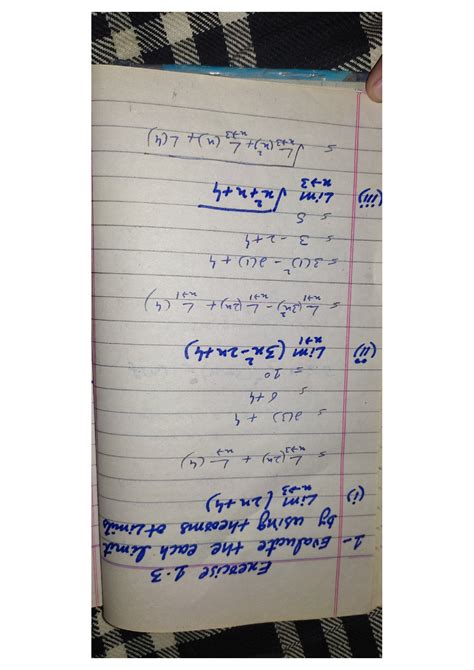 Exercise 1.3
1- Evaluate the each limit
by using theorems of limits
(i) Lim x→3 (2x+4)
= L x→3 (2x) + L x→ (4)
= 2(3) + 4
= 6+4
= 10
(ii) Lim x→1 (3x²-2x+4)
= L x→1 (3x²) - L x→1 (2x) + L x→1 (4)
= 3(1)² - 2(1) + 4
= 3 - 2 + 4
= 5
(iii) Lim x→3 √x²+x+4
= √L x→3 (x²) + L x→3 (x) + L (4)